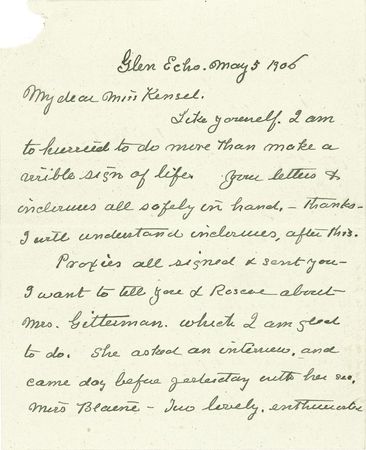 Glen Echo. May 5 1906
My dear Miss Kensel.
Like yourself. I am
to hurried to do more than make a
visible sign of life. Your letters &
inclosures all safely in hand, - thanks -
I will understand inclosures, after this.
Proxies all signed & sent you -
I want to tell you & Roscoe about
Mrs. Gitterman. which I am glad
to do. She asked an interview, and
came day before yesterday with her
Miss Blaene - Two lovely, enthusiastic